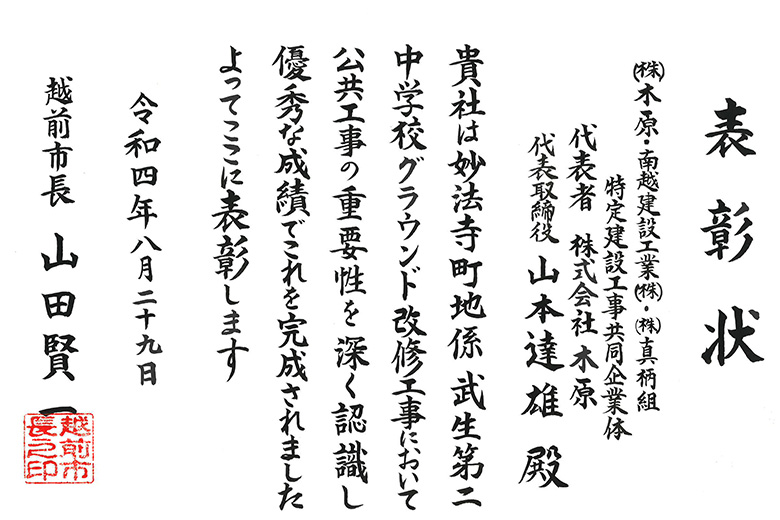 表彰状
㈱木原・南越建設工業㈱・㈱真柄組
特定建設工事共同企業体
代表者 株式会社木原
代表取締役 山本達雄殿
貴社は妙法寺町地係武生第二
中学校グラウンド改修工事において
公共工事の重要性を深く認識し
優秀な成績でこれを完成されました
よってここに表彰します
令和四年八月二十九日
越前市長 山田賢一
越前市
長之印